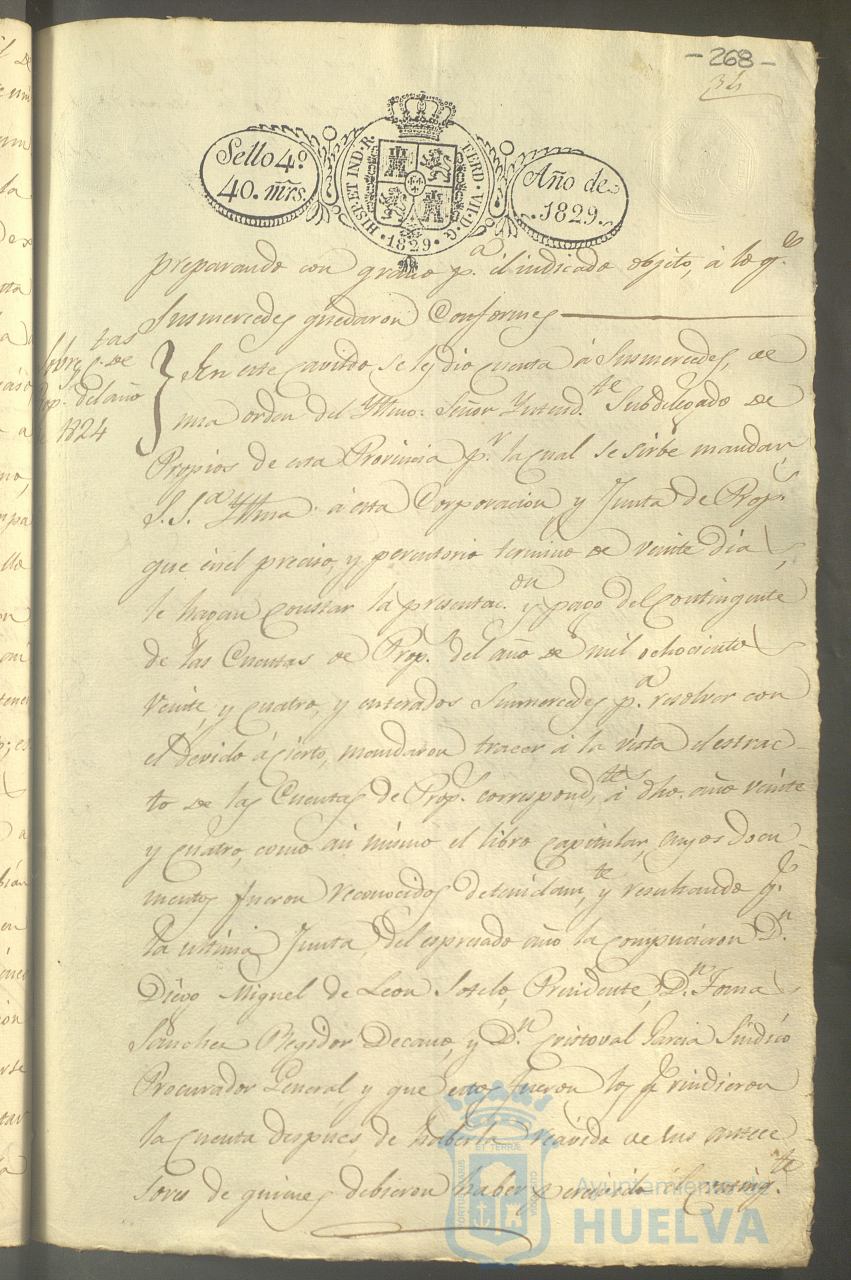 - 268 -
Sello 4º
40. mrs.
HISP. ET IND. R. FERD. VII. D. G.
1829
Año de
1829.
preparando con gracia p.ª el indicado objeto, á lo q.e
Susmercedes quedaron Conformes
Sobre c.tas
de
Prop.s del año
de 1824
En este cavildo se les dio cuenta á Susmercedes, de
una orden del Yltmo. Señor Yntend.te Subdelegado de
Propios de esta Provincia p.r la cual se sirbe mandar
S. S.ª Yltma. á esta Corporacion y Junta de Prop.s
que en el preciso, y perentorio termino de veinte dias
le hagan constar la presentac.on y pago del Contingente
de las Cuentas de Prop.s del año de mil ochocientos
veinte, y cuatro, y enterados Susmercedes p.ª resolver con
el devido acierto, mandaron traer á la vista el estrac-
to de las Cuentas de Prop.s correspond.tes á dho. año veinte
y cuatro, como asi mismo el libro capitular, cuyos docu-
mentos fueron reconocidos detenidam.te y resultando q.e
la ultima Junta, del espresado año la compusieron D.n
Diego Miguel de Leon Sotelo, Presidente, D.n Tomas
Sanchez Regidor Decano, y D.n Cristoval Garcia Sindico
Procurador General y que estos fueron los q.e rindieron
la cuenta despues de haberla recivido de sus antece-
sores de quienes debieron haber percivido el Conting.te
Ayuntamiento de
HUELVA